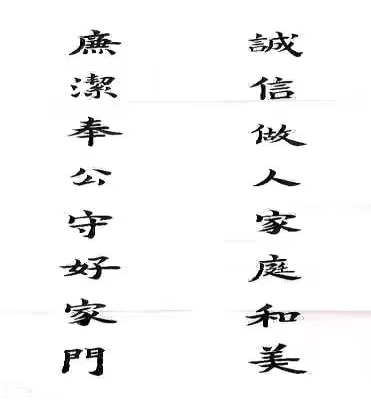 誠信做人家庭和美
廉潔奉公守好家門